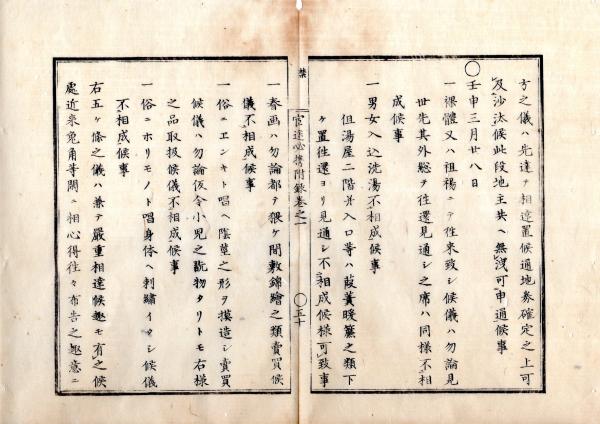 方之儀ハ先達テ相達置候通地券確定之上可
及沙汰候此段地主共ヘ無洩可申通候事
〇壬申三月廿八日
一裸體又ハ袒裼ニテ往来致シ候儀ハ勿論見
世先其外総テ往還見通シ之席ハ同様不相
成候事
一男女入込洗湯不相成候事
但湯屋二階并入口等ハ葭簀暖簾之類下
ケ置往還ヨリ見通シ不相成候様可致事
禁
官途必携附録巻之一
〇五十
一春画ハ勿論都テ猥ケ間敷錦繪之類賣買候
儀不相成候事
一俗ニエンキト唱ヘ陰莖之形ヲ摸造シ賣買
候儀ハ勿論仮令小児之翫物タリトモ右様
之品取扱候儀不相成候事
一俗ニホリモノト唱身体ヘ刺繡イタシ候儀
不相成候事
右五ケ條之儀ハ兼テ嚴重相達候趣モ有之候
處近来兎角等閑ニ相心得往々布告之趣意ニ